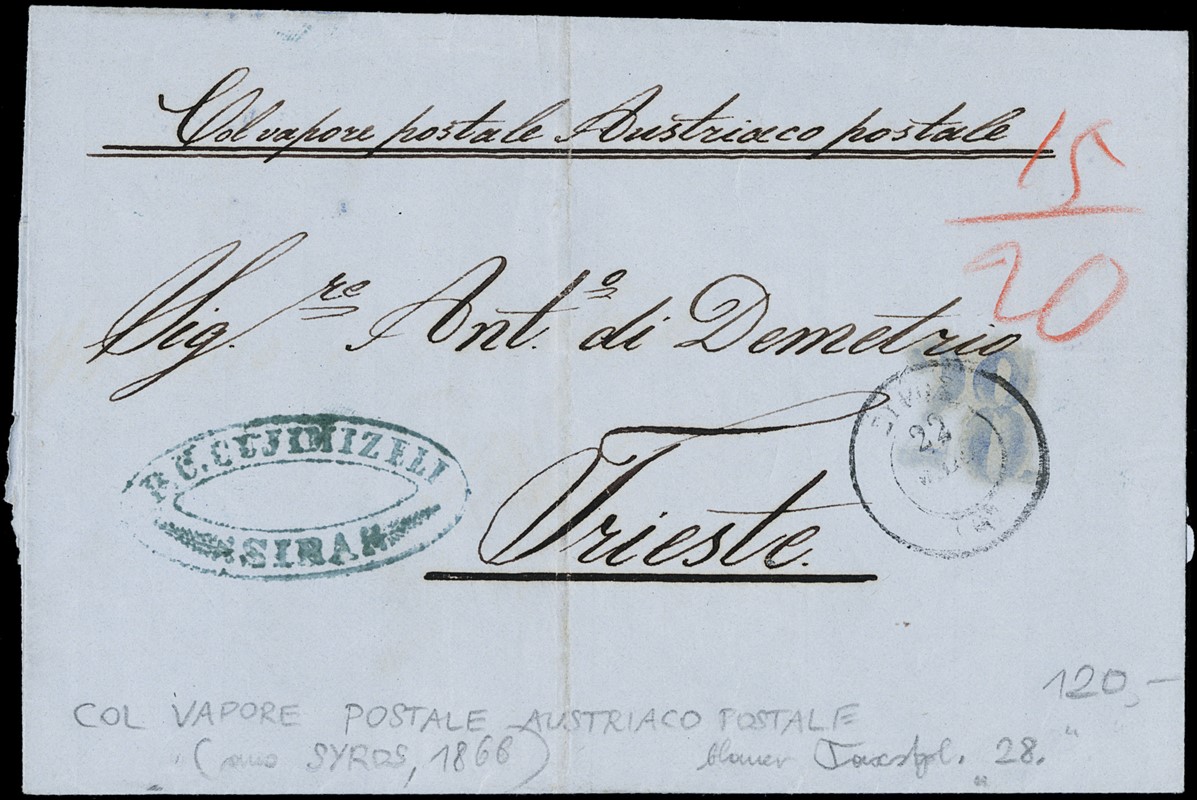 Col vapore postale Austriaco postale
15
20
Sig.re Ant.o di Demetrio
Trieste.
P. C. CUJIMIZELI
SIRA
22
120,—
COL VAPORE POSTALE AUSTRIACO POSTALE
(aus SYROS, 1866)
blauer Taxstpl. "28."